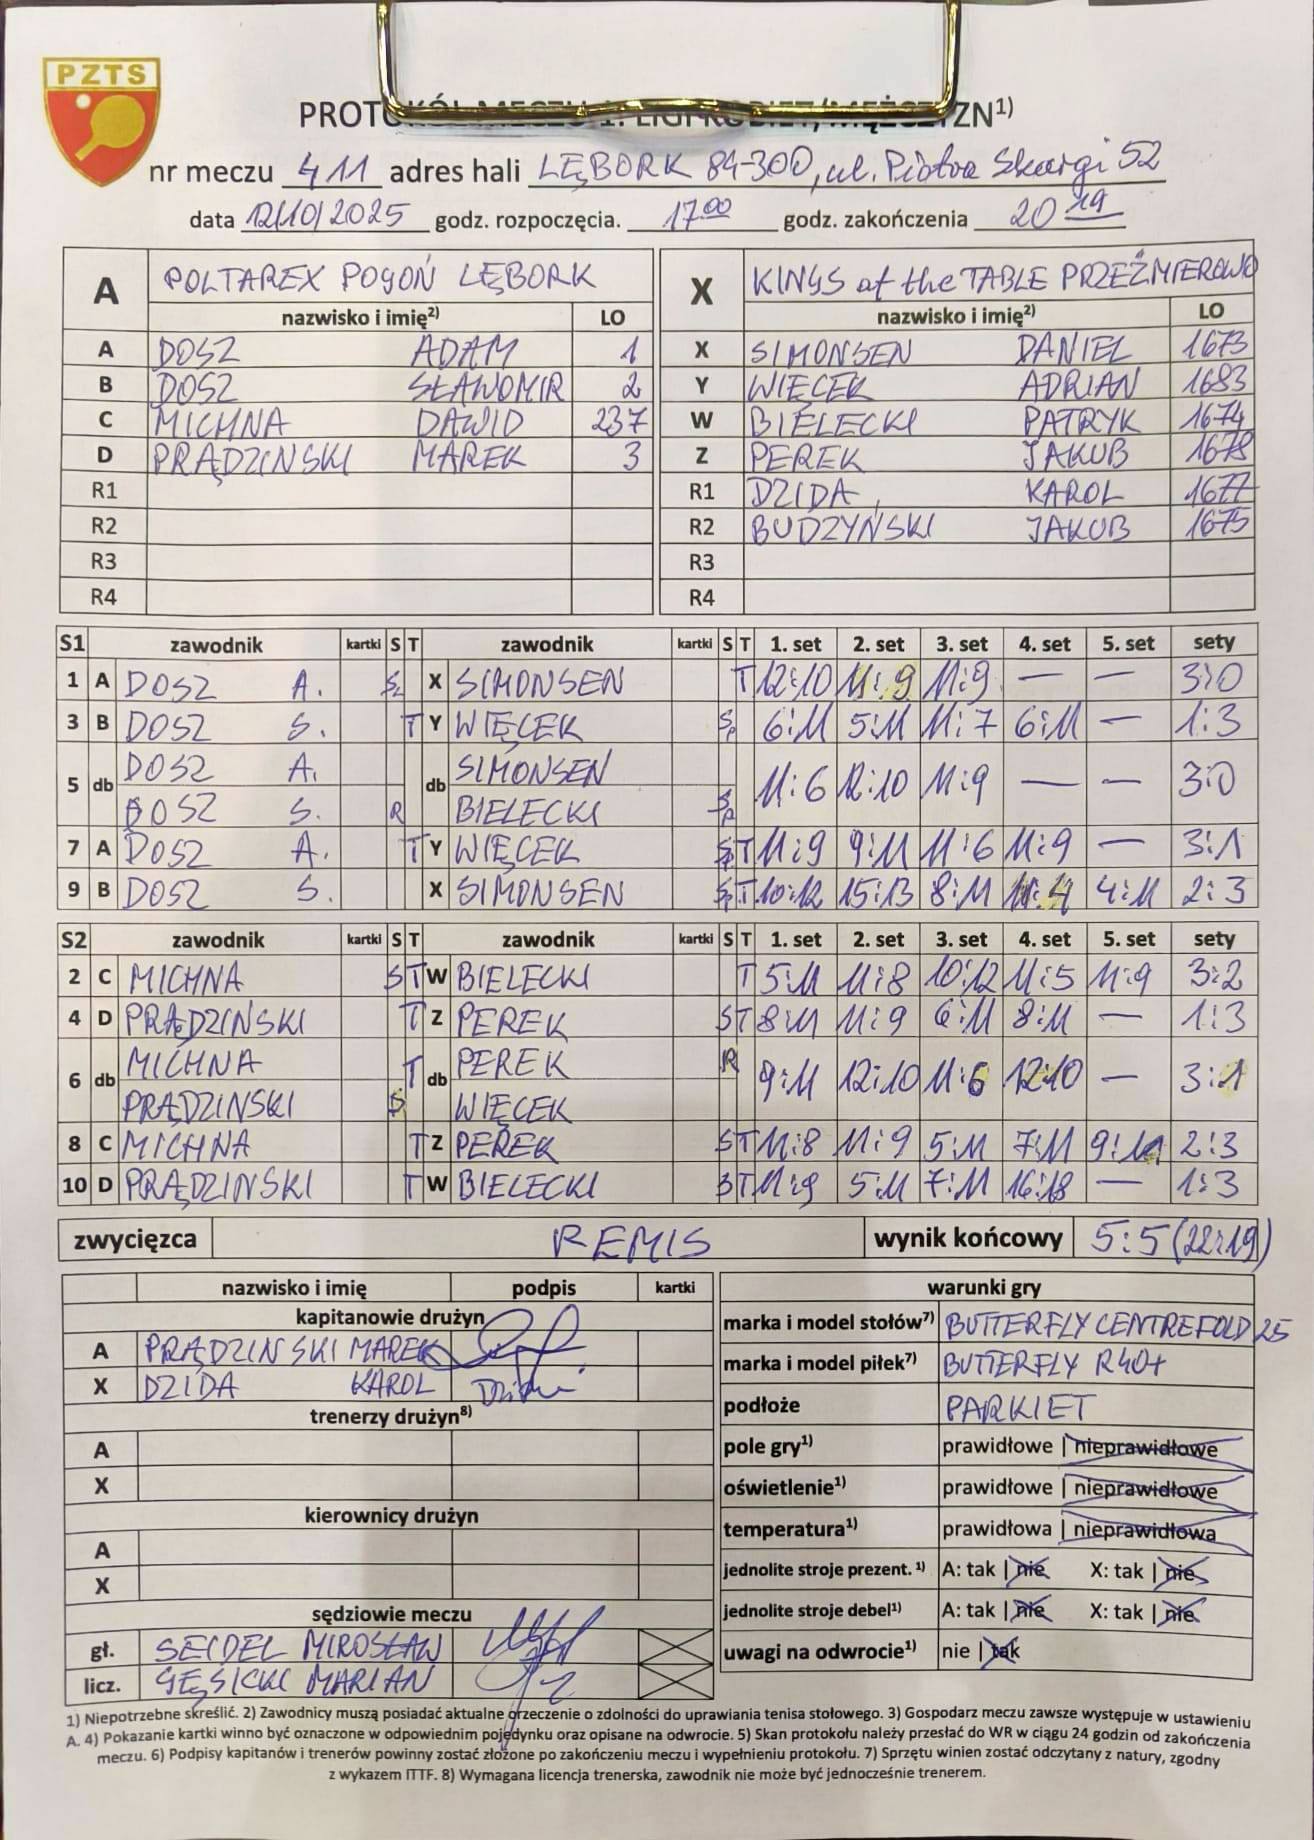 PZTS
PROTOKÓŁ MECZU 1. LIGI KOBIET/MĘŻCZYZN1)
nr meczu 411 adres hali LĘBORK 84-300, ul. Piotra Skargi 52
data 12/10/2025 godz. rozpoczęcia. 17.00 godz. zakończenia 20 19
A POLTAREX POGOŃ LĘBORK
nazwisko i imię2) LO
A DOSZ ADAM 1
B DOSZ SŁAWOMIR 2
C MICHNA DAWID 237
D PRĄDZIŃSKI MAREK 3
R1
R2
R3
R4
X KINGS of the TABLE PRZEŹMIEROWO
nazwisko i imię2) LO
X SIMONSEN DANIEL 1673
Y WIĘCEK ADRIAN 1683
W BIELECKI PATRYK 1674
Z PEREK JAKUB 1678
R1 DZIDA KAROL 1677
R2 BUDZYŃSKI JAKUB 1675
R3
R4
S1 zawodnik kartki S T zawodnik kartki S T 1. set 2. set 3. set 4. set 5. set sety
1 A DOSZ A. X SIMONSEN T 12:10 11:9 11:9 — — 3:0
3 B DOSZ S. T Y WIĘCEK Sp 6:11 5:11 11:7 6:11 — 1:3
5 db DOSZ A. db SIMONSEN 11:6 12:10 11:9 — — 3:0
DOSZ S. R BIELECKI Sp
7 A DOSZ A. T Y WIĘCEK Sp T 11:9 9:11 11:6 11:9 — 3:1
9 B DOSZ S. X SIMONSEN Sp T 10:12 15:13 8:11 11:4 4:11 2:3
S2 zawodnik kartki S T zawodnik kartki S T 1. set 2. set 3. set 4. set 5. set sety
2 C MICHNA S T W BIELECKI T 5:11 11:8 10:12 11:5 11:9 3:2
4 D PRĄDZIŃSKI T Z PEREK S T 8:11 11:9 6:11 8:11 — 1:3
6 db MICHNA T db PEREK R 9:11 12:10 11:6 12:10 — 3:1
PRĄDZIŃSKI S WIĘCEK
8 C MICHNA T Z PEREK S T 11:8 11:9 5:11 7:11 9:11 2:3
10 D PRĄDZIŃSKI T W BIELECKI S T 11:9 5:11 7:11 16:18 — 1:3
zwycięzca REMIS wynik końcowy 5:5 (22:19)
nazwisko i imię podpis kartki
kapitanowie drużyn
A PRĄDZIŃSKI MAREK
X DZIDA KAROL
trenerzy drużyn8)
A
X
kierownicy drużyn
A
X
sędziowie meczu
gł. SEIDEL MIROSŁAW
licz. GĘSICKI MARIAN
warunki gry
marka i model stołów7) BUTTERFLY CENTREFOLD 25
marka i model piłek7) BUTTERFLY R40+
podłoże PARKIET
pole gry1) prawidłowe | nieprawidłowe
oświetlenie1) prawidłowe | nieprawidłowe
temperatura1) prawidłowa | nieprawidłowa
jednolite stroje prezent. 1) A: tak | nie X: tak | nie
jednolite stroje debel1) A: tak | nie X: tak | nie
uwagi na odwrocie1) nie | tak
1) Niepotrzebne skreślić. 2) Zawodnicy muszą posiadać aktualne orzeczenie o zdolności do uprawiania tenisa stołowego. 3) Gospodarz meczu zawsze występuje w ustawieniu
A. 4) Pokazanie kartki winno być oznaczone w odpowiednim pojedynku oraz opisane na odwrocie. 5) Skan protokołu należy przesłać do WR w ciągu 24 godzin od zakończenia
meczu. 6) Podpisy kapitanów i trenerów powinny zostać złożone po zakończeniu meczu i wypełnieniu protokołu. 7) Sprzętu winien zostać odczytany z natury, zgodny
z wykazem ITTF. 8) Wymagana licencja trenerska, zawodnik nie może być jednocześnie trenerem.